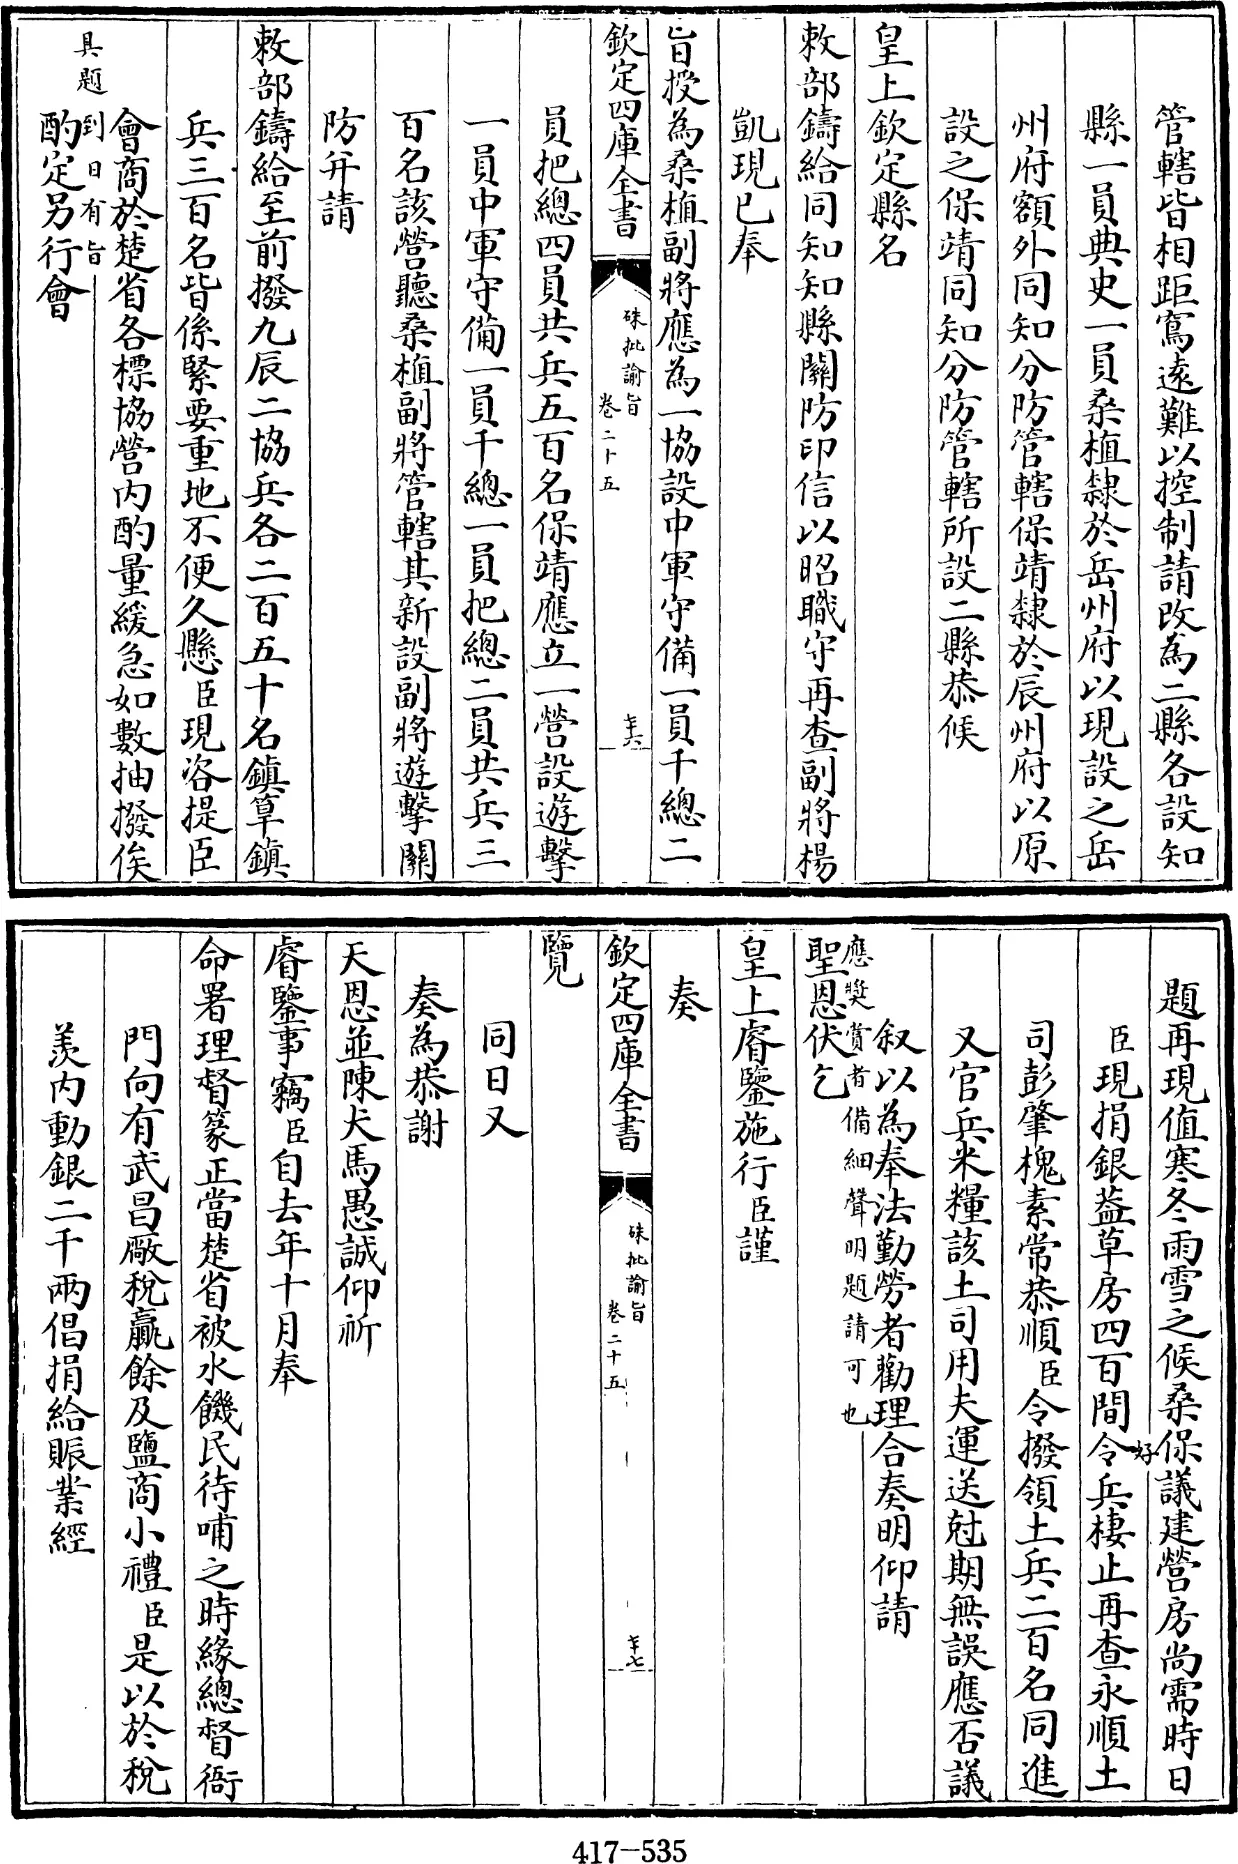 管轄皆相距寫遠難以控制請改為二縣各設知
縣一員典史一員桑植隸於岳州府以現設之岳
州府額外同知分防管轄保靖隸於辰州府以原
設之保靖同知分防管轄所設二縣恭候
皇上欽定縣名
敕部鑄給同知知縣關防印信以昭職守再查副將楊
凱現已奉
旨授為桑植副將應為一協設中軍守備一員千總二
欽定四庫全書
硃批諭旨
卷二十五
員把總四員共兵五百名保靖應立一營設遊擊
一員中軍守備一員千總一員把總二員共兵三
百名該營聽桑植副將管轄其新設副將遊擊關
防弁請
敕部鑄給至前撥九辰二協兵各二百五十名鎮筸鎮
兵三百名皆係緊要重地不便久懸臣現咨提臣
會商於楚省各標協營内酌量緩急如數抽撥俟
具題到日有旨
酌定另行會
題再現值寒冬雨雪之候桑保議建營房尚需時日
好
臣現捐銀葢草房四百間令兵棲止再查永順土
司彭肇槐素常恭順臣令撥領土兵二百名同進
又官兵米糧該土司用夫運送尅期無誤應否議
叙以為奉法勤勞者勸理合奏明仰請
應奬賞者備細聲明題請可也
聖恩伏乞
皇上睿鑒施行臣謹
奏
欽定四庫全書
硃批諭旨
卷二十五
覽
同日又
奏為恭謝
天恩並陳犬馬愚誠仰祈
睿鑒事竊臣自去年十月奉
命署理督篆正當楚省被水饑民待哺之時緣總督衙
門向有武昌廠稅贏餘及鹽商小禮臣是以於稅
羨内動銀二千兩倡捐給賑業經
417-535